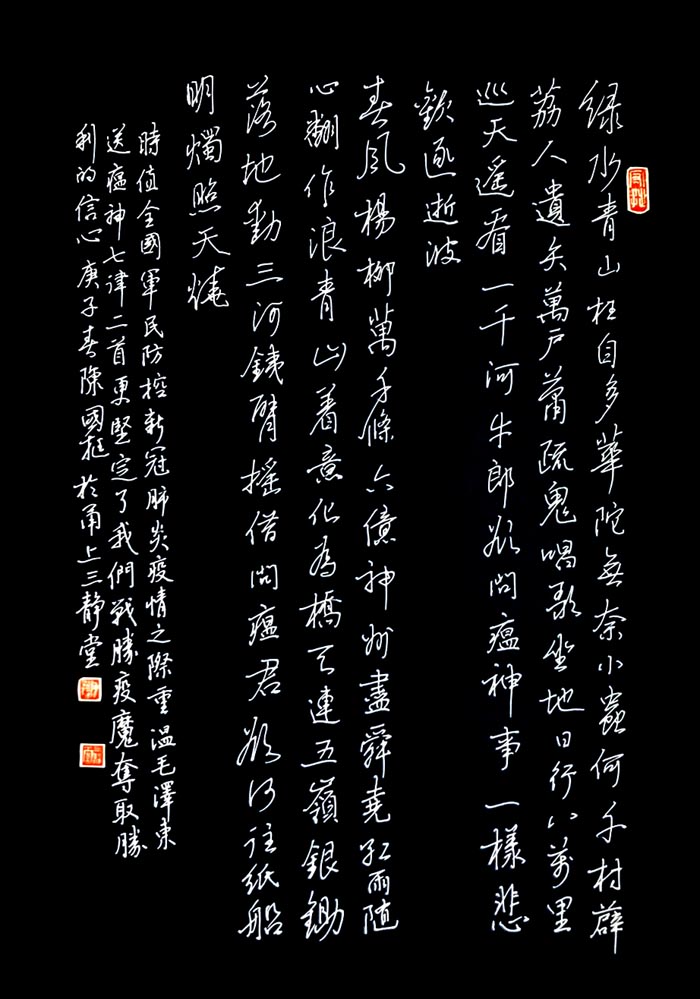 緑水青山枉自多華陀無奈小蟲何千村薜
荔人遺矢萬戶蕭疏鬼唱歌坐地日行八萬里
巡天遥看一千河牛郎欲問瘟神事一樣悲
歡逐逝波
春風楊柳萬千條六億神州盡舜堯紅雨随
心翻作浪青山着意化為橋天連五嶺銀鋤
落地動三河鉄臂摇借問瘟君欲何往紙船
明燭照天燒
時值全國軍民防控新冠肺炎疫情之際重温毛澤東
送瘟神七律二首更堅定了我們戰勝疫魔奪取勝
利的信心庚子春陳國挺於甬上三静堂